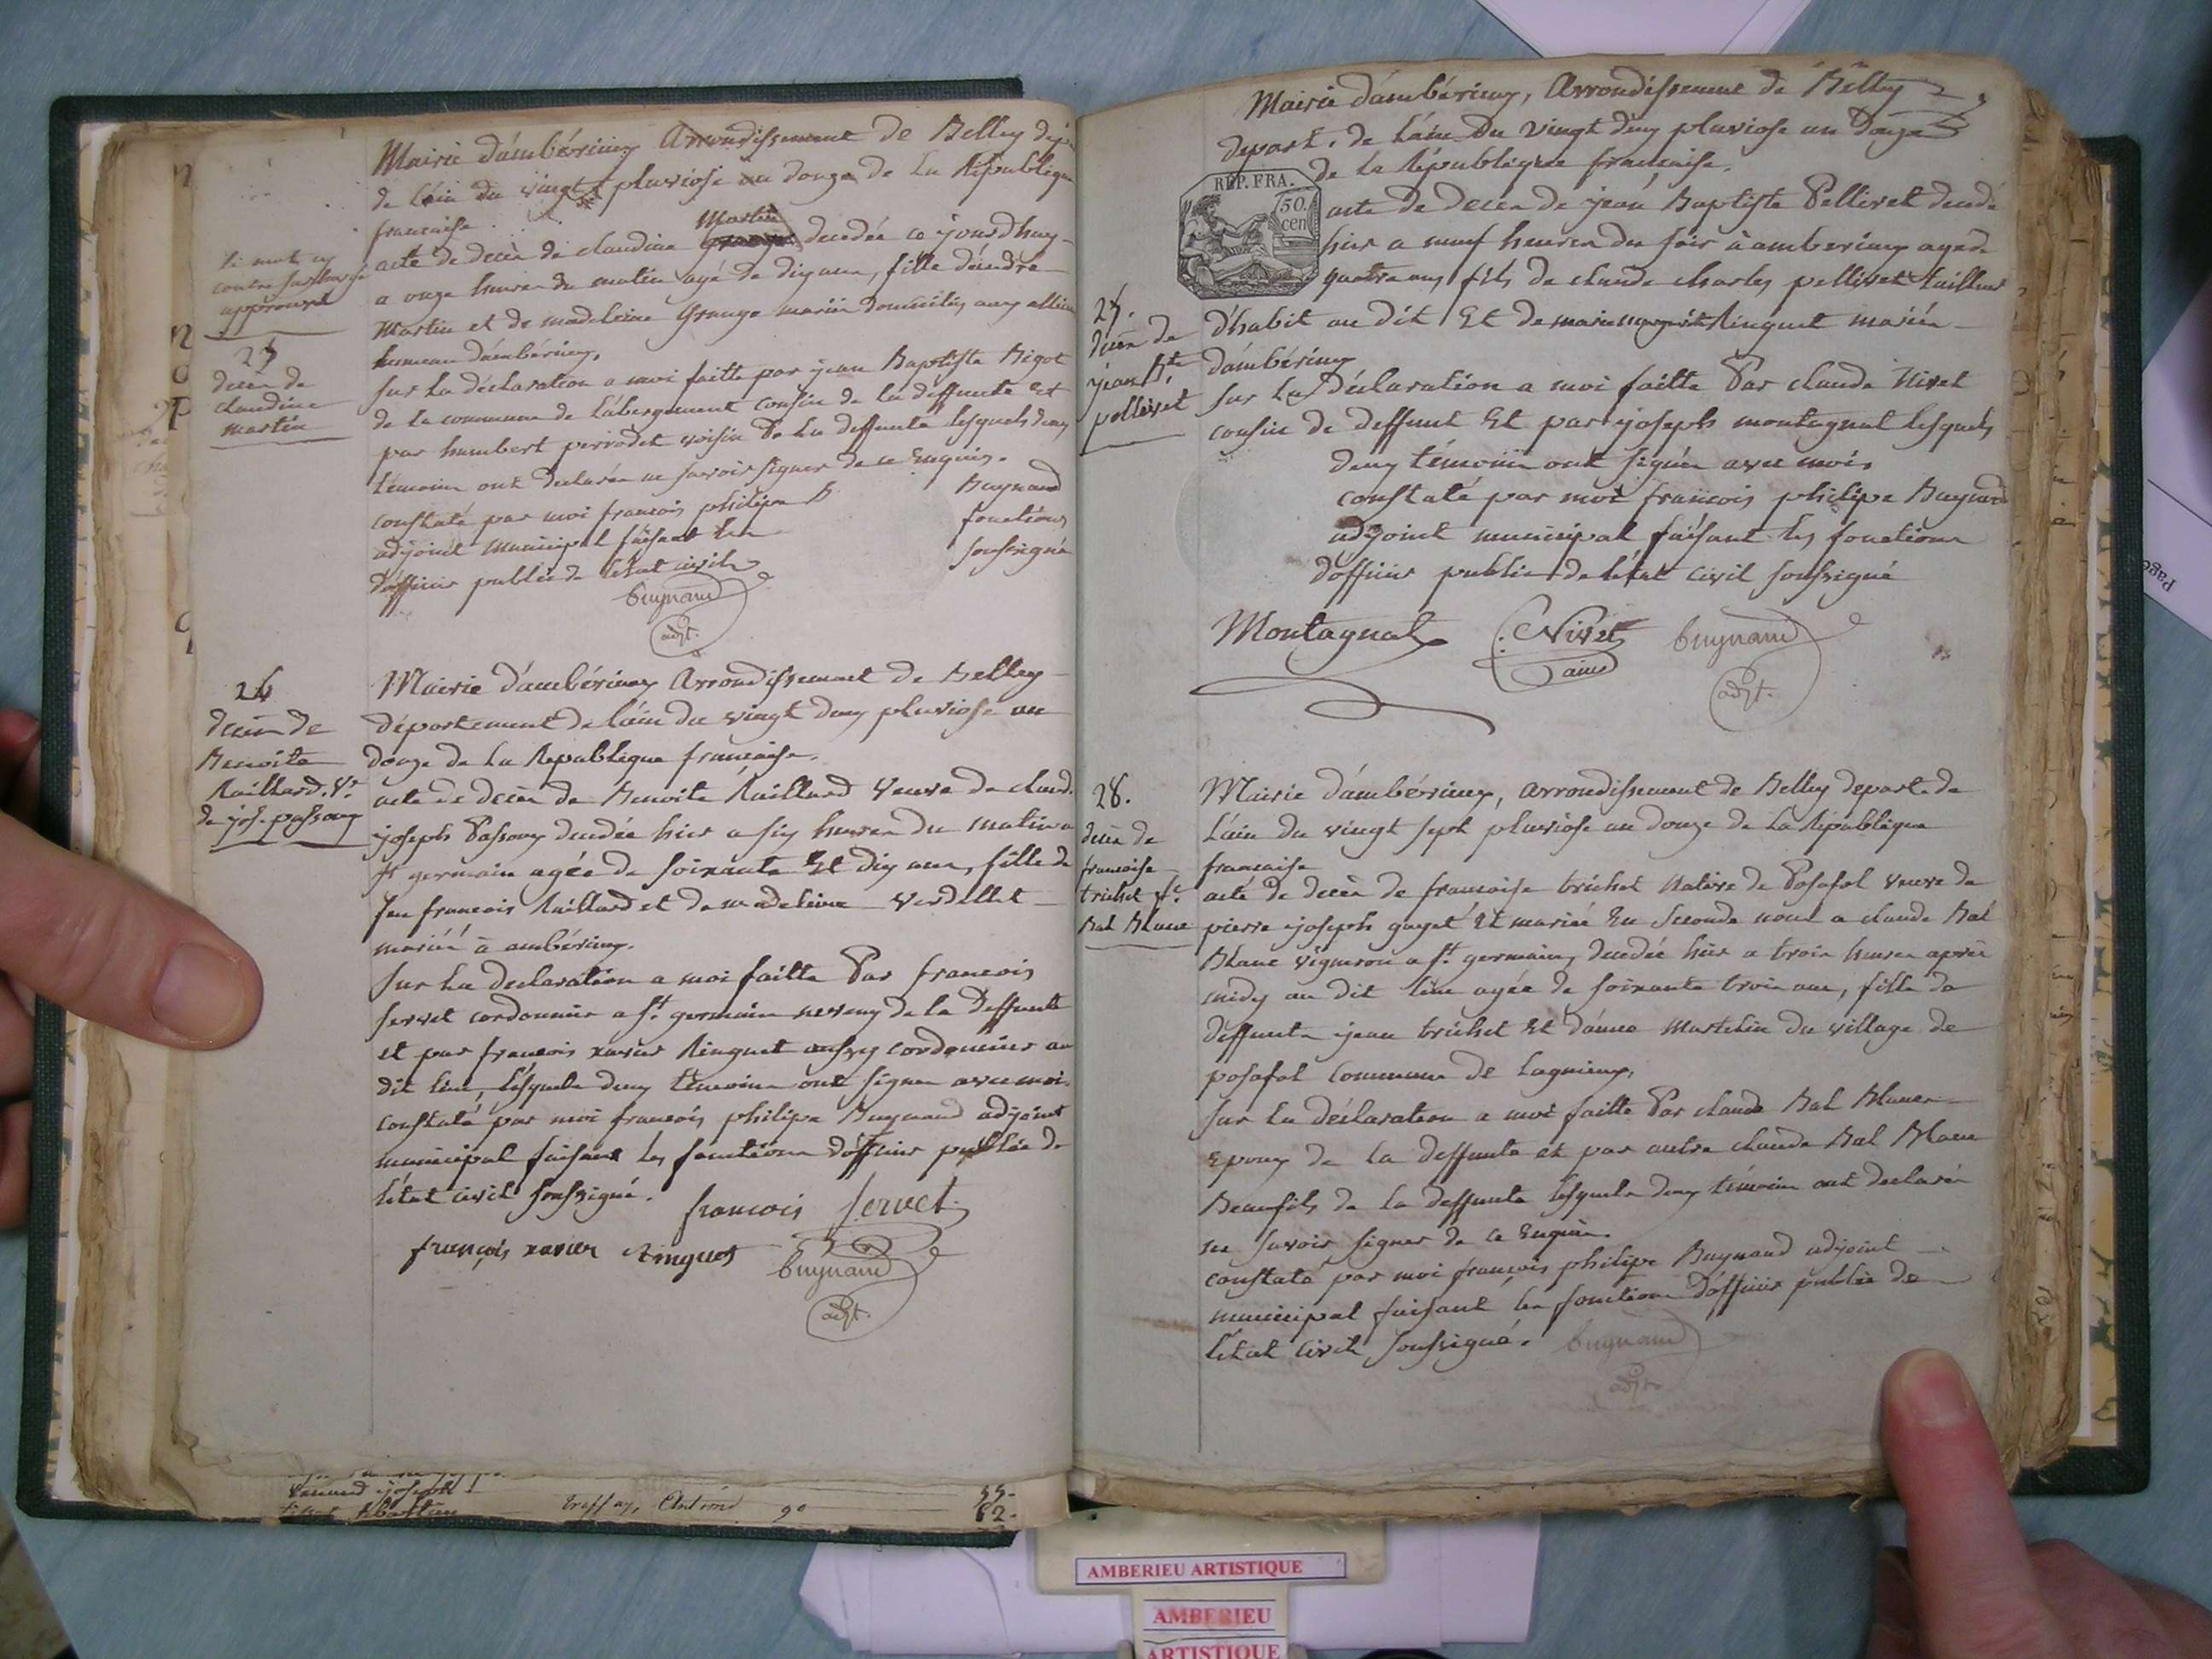 Mairie d'ambérieux Arrondissement de Belley dép
de l'ain du vingt pluviose an douze de la République
francaise
acte de decès de claudine Martin decedée ce jourdhuy
a onze heures du matin agé de dix ans, fille d'andré
Martin et de madeleine Grange mariés domiciliés aux allim
hameau d'ambérieux.
sur la déclaration a moi faitte par jean Baptiste Bigot
de la commune de l'abergement cousin de la deffunte et
par humbert perrodet voisin de la deffunte lesquels deux
témoins ont declarés ne savoir signer de ce Enquis.
constaté par moi francois philipe B Buynand
adjoint municipal faisant les fonctions
d'officier public de l'état civil soussigné
buynand
adjt.
le mot cy
contre surchargé
approuvé
25
decès de
claudine
martin
26
decès de
Benoite
Raillard. Ve
de jos. passoux
Mairie d'ambérieux Arrondissement de Belley
département de l'ain du vingt deux pluviose an
douze de la République francaise.
acte de decès de Benoite Raillard veuve de claud.
joseph Passoux decedée hier a six heures du matin a
st germain agée de soixante et dix ans, fille de
feu francois Raillard et de madeleine Verdellet
mariés à ambérieux.
sur la declaration a moi faitte Par francois
servet cordonnier a st. germain neveux de la deffunte
et par francois xavier Ringuet aussy cordonnier au
dit lieu, lesquels deux témoins ont signer avec moi.
constaté par moi francois philipe Buynand adjoint
municipal faisant les fonctions d'officier public de
l'état civil soussigné.
francois servet
françois xavier Ringuet
buynand
adjt.
Joseph
Antoine 90
55.
62.
Mairie d'ambérieux, Arrondissement de Belley
depart. de l'ain du vingt deux pluviose an douze
de la République francaise.
REP. FRA.
50.
cen
acte de decès de jean Baptiste Pellivet decedé
hier a neuf heures du soir à amberieux agé de
quatre ans fils de claude charles pellivet tailleur
d'habit au dit Et de marie margueritte Ringuet mariés
d'ambérieux
sur la Déclaration a moi faitte Par claude Nivet
cousin de deffunt Et par joseph montagnat lesquels
deux témoins ont signés avec moi.
constaté par moi francois philipe Buynand
adjoint municipal faisant les fonctions
d'officier public de l'état civil soussigné
27.
decès de
jean Bte.
pellivet
Montagnat C. Nivet buynand
ainé adjt.
28.
decès de
francoise
trichet fe.
Bal Blanc
Mairie d'ambérieux, arrondissement de Belley depart. de
l'ain du vingt sept pluviose an douze de la République
francaise
acte de decès de francoise trichet native de Posafol veuve de
pierre joseph gayet Et mariée En seconde noces a claude Bal
Blanc vigneron a st. germain, decedée hier a trois heures après
midy au dit lieu agée de soixante trois ans, fille de
deffunts jean trichet Et d'anne Martelin du village de
posafol commune de Lagnieux.
sur la déclaration a moi faitte Par claude Bal Blanc
Epoux de la deffunte et par autre claude Bal Blanc
Beaufils de la deffunte lesquels deux témoins ont declarés
ne savoir signer de ce Enquis.
constaté par moi françois philipe Buynand adjoint
municipal faisant les fonctions d'officier public de
l'état civil soussigné.
buynand
adjt.
Page
AMBERIEU ARTISTIQUE
AMBERIEU
ARTISTIQUE